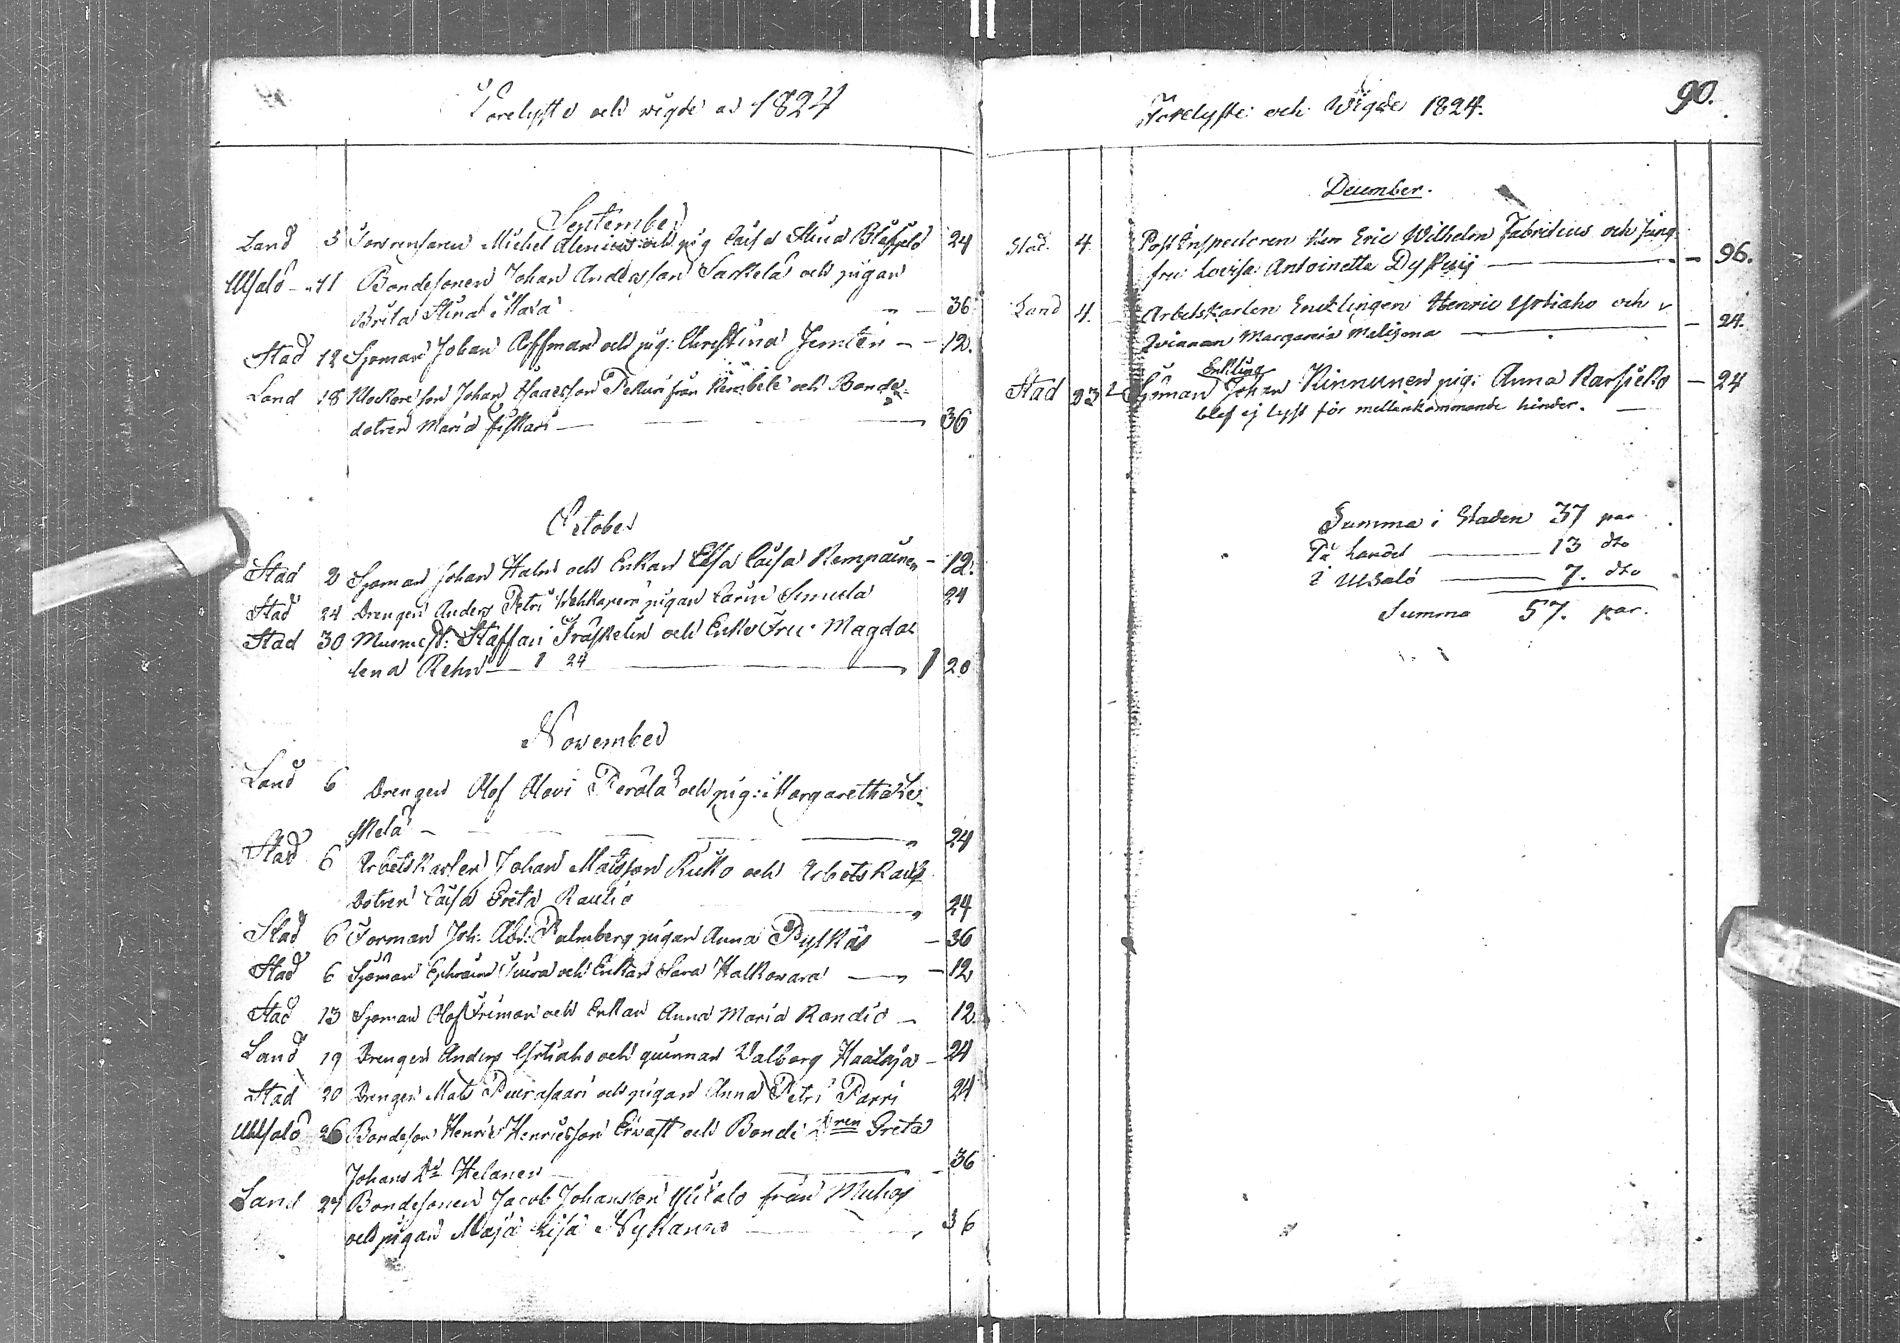 Forelyste och wigde ar 1824
September
Land 5 Michel Alenius och pig Caisa Stina 24
Uhlsalo 11 Bondesonen Johan Andersson Sarkela och pigan
Brita Stina Mara 36
Stad 12 Sjoman Johan Hoffman och pig: Christina Jemten 12.
Land 18 Klockare son Johan Isaacsson Pekuri från Kembele och Bonde
dotren Maria Fiskari 36
October
Stad 2 Sjoman Johan Halm och Enkan Elsa Caisa Kempainen 12.
Stad 24 Drengen Anders Petri pigan Carin Simula 24
Stad 30 Staffan Fräskelin och Enke Fru Magda
lena Rehn 1 24 1 20
November
Land 6 Drengen Olof Olovi Perälä och pig: Margaretha Le
skelä 24
Stad 6 Arbetskarlen Johan Matsson Kuko och Arbetskarls
dotren Caisa Greta Rautio 24
Stad 6 Forman Joh: Abr: Palmberg pigan Anna Pylkäs 36
Stad 6 Sjöman Ephraim Juura och Enkan Sara Halkowara 12
Stad 13 Sjoman Olof Friman och Enkan Anna Maria Randio 12.
Land 19 Drengen Anders Yrtiaho och quinnan Valborg Haataja 24
Stad 20 Drengen Mats Puurasaari och pigan Anna Petri Parri 24
Uhlsalo 26 Bondeson Henric Henricsson Erwast och Bonde dren Greta
Johans dr Helanen 36
Land 27 Bondesonen Jacob Johansson från Muhos
och pigan Maja Lisa Nykänen 36
Förelyste och Wigde 1824. 90.
December.
Stad. 4. Post Inspectoren Herr Eric Wilhelm Fabritius och Jung
fru Lovisa Antoinetta 96.
Land 4. Arbetskarlen Encklingen Henric Yrtiaho och
Qvinnan Margareta 24.
Enkling
Stad 23 Sjöman Johan Kinnunen pig: Anna Karsicko 24
blef ej lyst för mellankommande hinder.
Summa i Staden 37 par
På landet 13 dto
i Uhlsalo 7. dto
Summa 57. par.